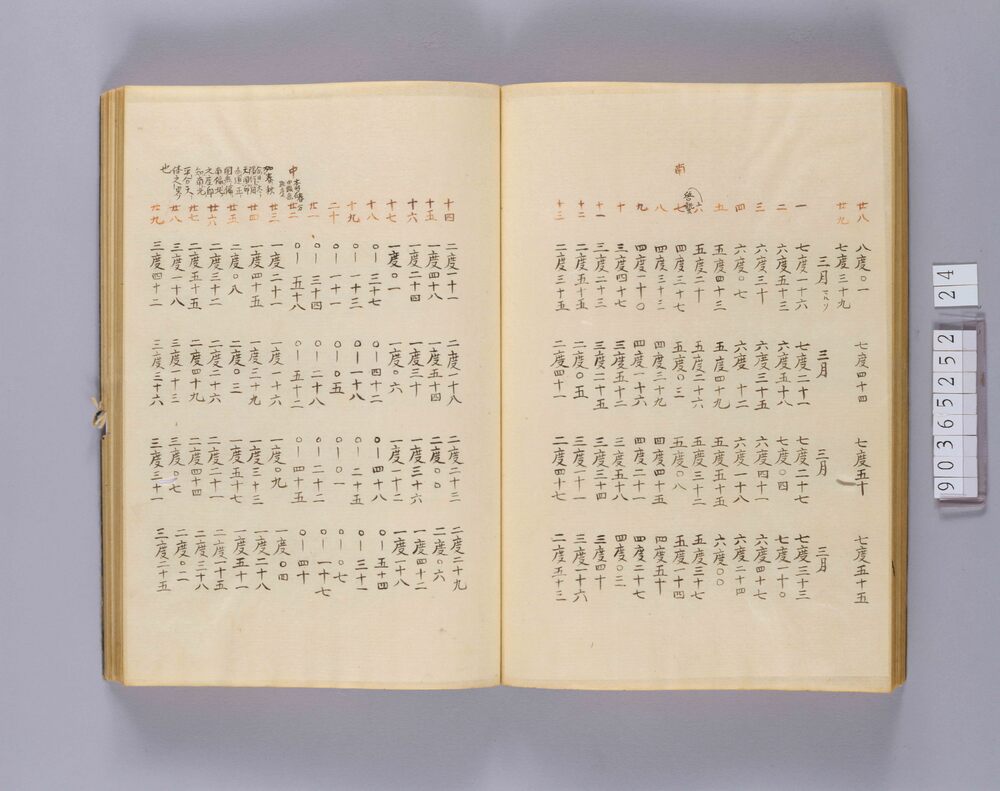 廿八 八度〇一 七度四十四 七度五十 七度五十五
廿九 七度三十九
三月 三月 三月 三月
一 七度一十六 七度二十一 七度二十七 七度三十三
二 六度五十三 六度五十八 七度〇四 七度一十〇
三 六度三十 六度三十五 六度四十一 六度四十七
四 六度〇七 六度一十二 六度一十八 六度二十四
五 五度四十三 五度四十九 五度五十五 六度〇〇
六 五度二十 五度二十六 五度三十二 五度三十七
南
七 四度三十七 五度〇三 五度〇八 五度一十四
八 四度三十三 四度三十九 四度四十五 四度五十
九 四度一十〇 四度一十六 四度二十一 四度二十七
十 三度四十七 三度五十二 三度五十八 四度〇三
十一 三度二十三 三度二十五 三度三十四 三度四十
十二 二度五十五 三度〇五 三度一十一 三度一十六
十三 二度三十五 二度四十一 二度四十七 二度五十三
十四 二度一十一 二度一十八 二度二十三 二度二十九
十五 一度四十八 一度五十四 二度〇〇 二度〇六
十六 一度二十四 一度三十 一度三十六 一度四十二
十七 一度〇一 一度〇六 一度一十二 一度一十八
十八 〇一三十七 〇一四十二 〇一四十八 〇一五十四
十九 〇一一十三 〇一一十八 〇一二十五 〇一三十一
二十 〇一一十一 〇一〇五 〇一〇一 〇一〇七
廿一 〇一三十四 〇一二十八 〇一二十二 〇一一十七
中
廿二 〇一五十八 〇一五十二 〇一四十五 〇一四十
廿三 一度二十一 一度一十六 一度〇九 一度〇四
廿四 一度四十五 一度三十九 一度三十三 一度二十八
廿五 二度〇八 二度〇三 一度五十七 一度五十一
廿六 二度三十二 二度二十六 二度二十一 二度一十五
廿七 二度五十五 二度四十九 二度四十四 二度三十八
廿八 三度一十八 三度一十三 三度〇七 三度〇二
也
廿九 三度四十二 三度三十六 三度三十一 三度二十五
24
90365252